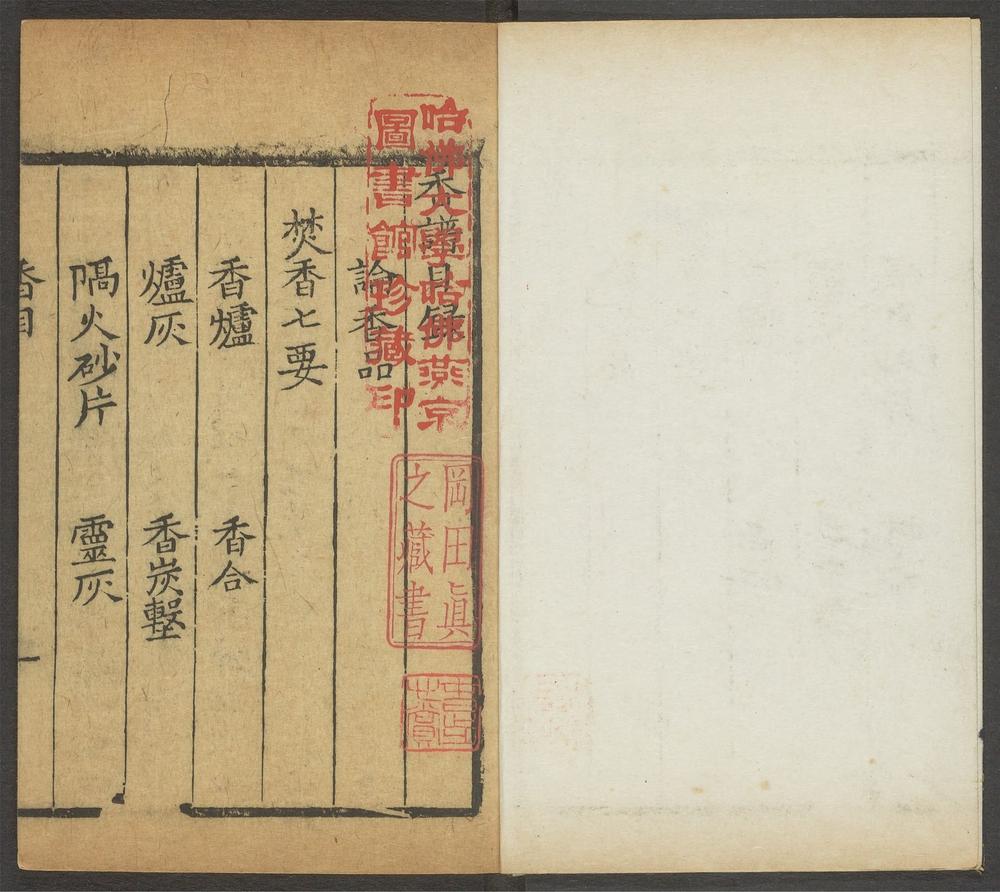 香譜目錄
論香品
焚香七要
香爐 香合
爐灰 香炭墼
隔火砂片 靈灰
香目
一
哈佛大學哈佛燕京
圖書館珍藏印
岡田眞
之藏書